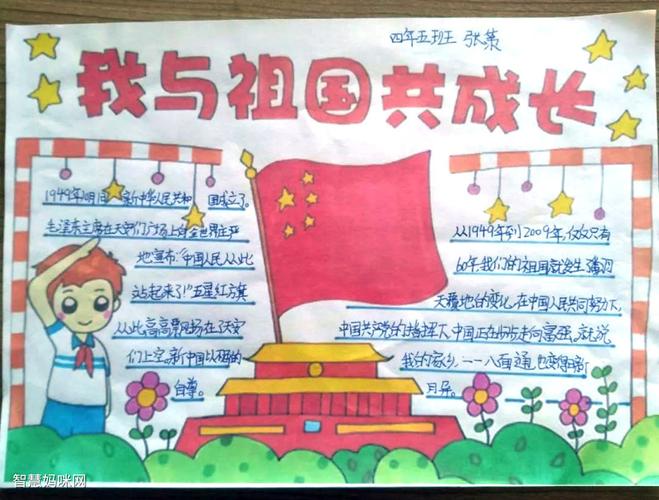 四年五班 张策
我与祖国共成长
1949年10月1日 新中华人民共和 国成立了。
毛泽东主席在天安门广场上向全世界庄严
地宣布:“中国人民从此
站起来了!”五星红方旗
从此高高飘扬在了天安
们上空。新中国以
自尊。
从1949年到2009年,仅仅只有
60年,我们的祖国就发生
天覆地的变化,在中国人民共同努力下,
中国共党的指挥下,中国正在步步走向富强。就说
我的家乡一一八面通,也变得日新
月异。
智慧妈咪网